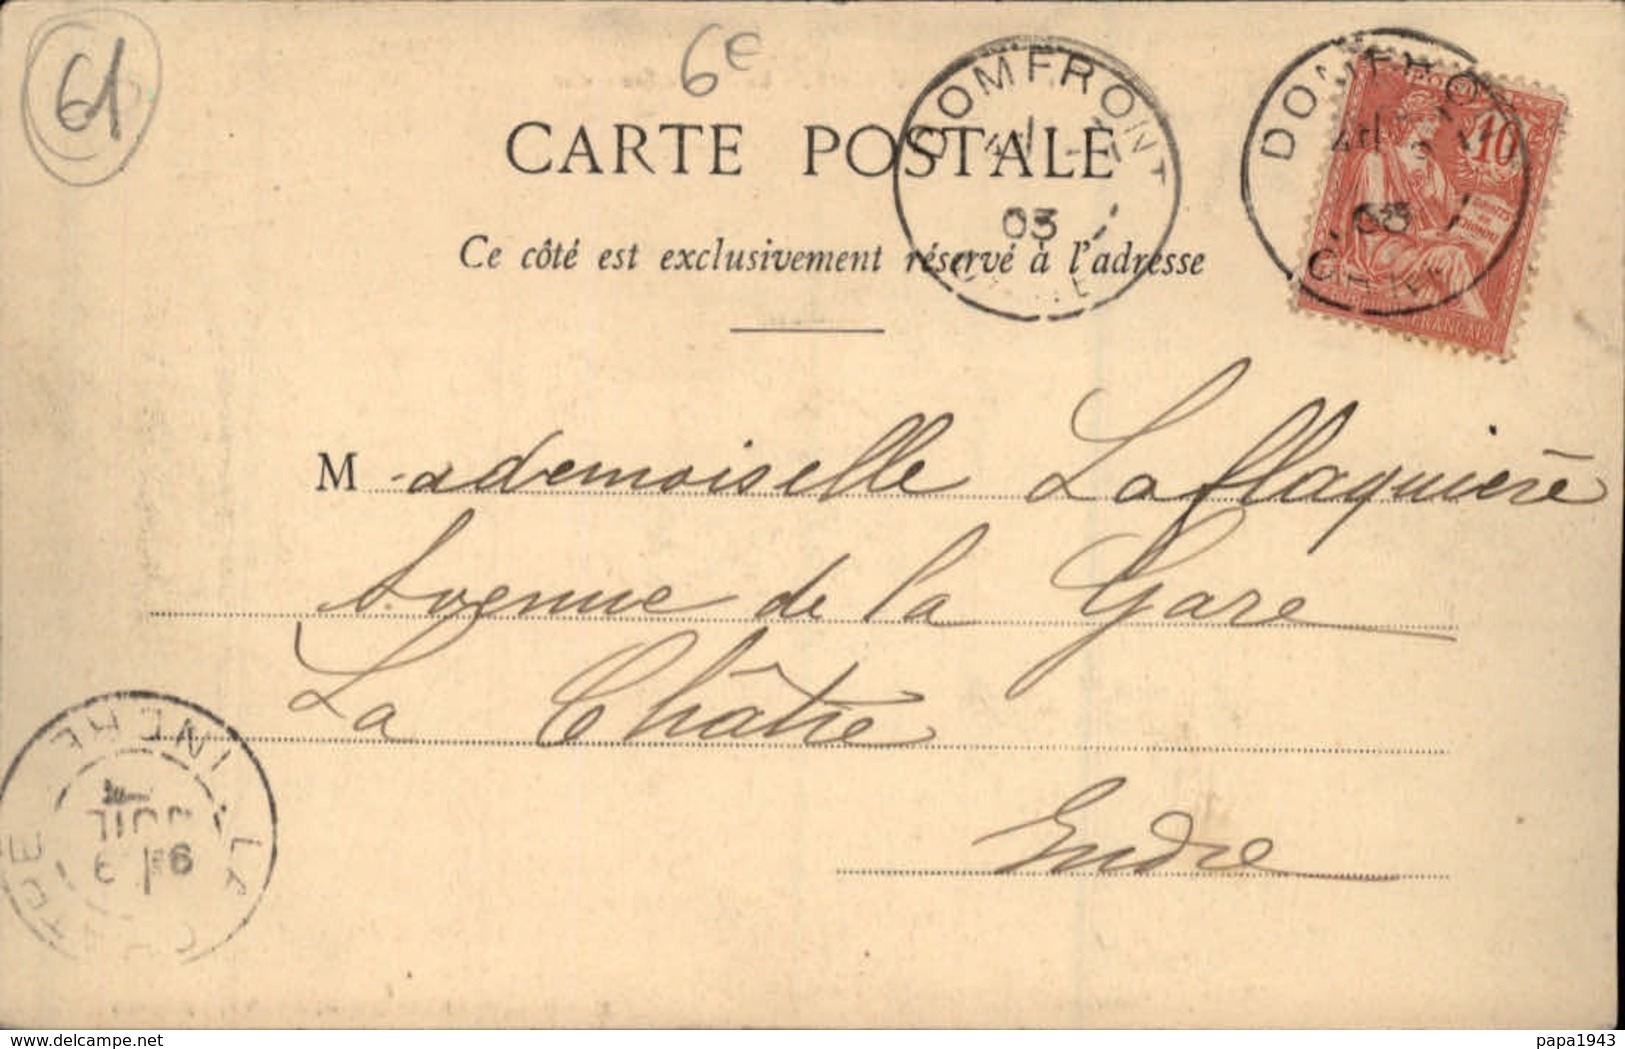 61
6e
CARTE POSTALE
Ce côté est exclusivement réservé à l'adresse
DOMFRONT
03
DOMFRO
03
10
FRANÇAI
Mademoiselle Laflaquière
Avenue de la Gare
La Châtre
Indre
INDRE
papa1943